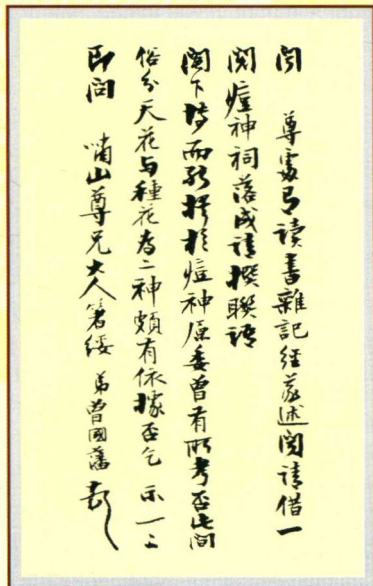 聞 尊處有讀書雜記經義述聞請借一
閱痘神祠落成請撰聯語
閣下博而能於痘神原委曾有所考否此間
俗分天花与種花為二神頗有依據否乞 示一二
即問 嘯山尊兄大人箸綏 弟曾國藩